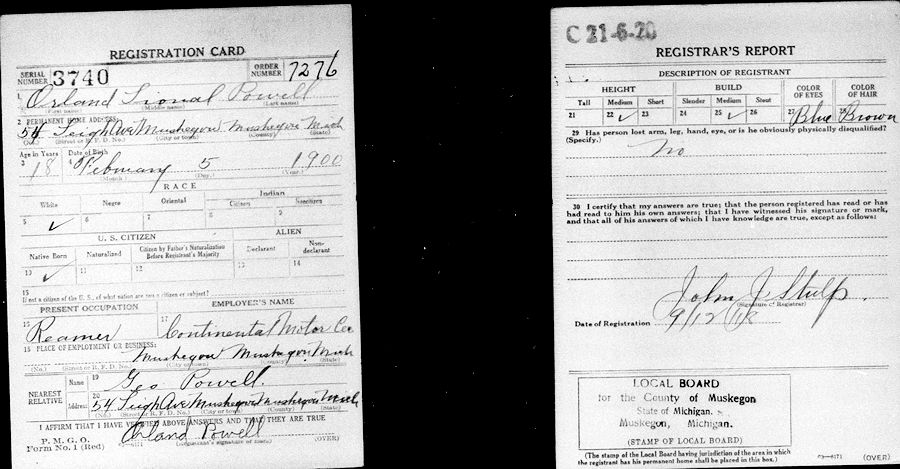 REGISTRATION CARD
SERIAL NUMBER 3740 ORDER NUMBER 7276
1 Orland Lional Powell
(First name) (Middle name) (Last name)
2 PERMANENT HOME ADDRESS:
54 Leigh Ave Muskegon Muskegon Mich
(No.) (Street or R. F. D. No.) (City or town) (County) (State)
Age in Years Date of Birth
3 18 4 February 5 1900
(Month.) (Day.) (Year.)
RACE
White Negro Oriental Indian
Citizen Noncitizen
5 ✓ 6 7 8 9
U. S. CITIZEN ALIEN
Native Born Naturalized Citizen by Father's Naturalization Before Registrant's Majority Declarant Non-declarant
10 ✓ 11 12 13 14
15
If not a citizen of the U. S., of what nation are you a citizen or subject?
PRESENT OCCUPATION EMPLOYER'S NAME
16 Reamer 17 Continental Motor Co
18 PLACE OF EMPLOYMENT OR BUSINESS:
Muskegon Muskegon Mich
(No.) (Street or R. F. D. No.) (City or town) (County) (State)
NEAREST RELATIVE
Name 19 Geo Powell
Address 20 54 Leigh Ave Muskegon Muskegon Mich
(No.) (Street or R. F. D. No.) (City or town) (County) (State)
I AFFIRM THAT I HAVE VERIFIED ABOVE ANSWERS AND THAT THEY ARE TRUE
P. M. G. O.
Form No. 1 (Red) Orland Powell
(Registrant's signature or mark) (OVER)
C 21-6-20
REGISTRAR'S REPORT
DESCRIPTION OF REGISTRANT
HEIGHT BUILD COLOR OF EYES COLOR OF HAIR
Tall Medium Short Slender Medium Stout
21 22 ✓ 23 24 25 ✓ 26 27 Blue 28 Brown
29 Has person lost arm, leg, hand, eye, or is he obviously physically disqualified?
(Specify.) No
30 I certify that my answers are true; that the person registered has read or has
had read to him his own answers; that I have witnessed his signature or mark,
and that all of his answers of which I have knowledge are true, except as follows:
John J Stulp
(Signature of Registrar)
Date of Registration 9/12/18
LOCAL BOARD
for the County of Muskegon
State of Michigan.
Muskegon, Michigan.
(STAMP OF LOCAL BOARD)
(The stamp of the Local Board having jurisdiction of the area in which
the registrant has his permanent home shall be placed in this box.)
03-6171 (OVER)